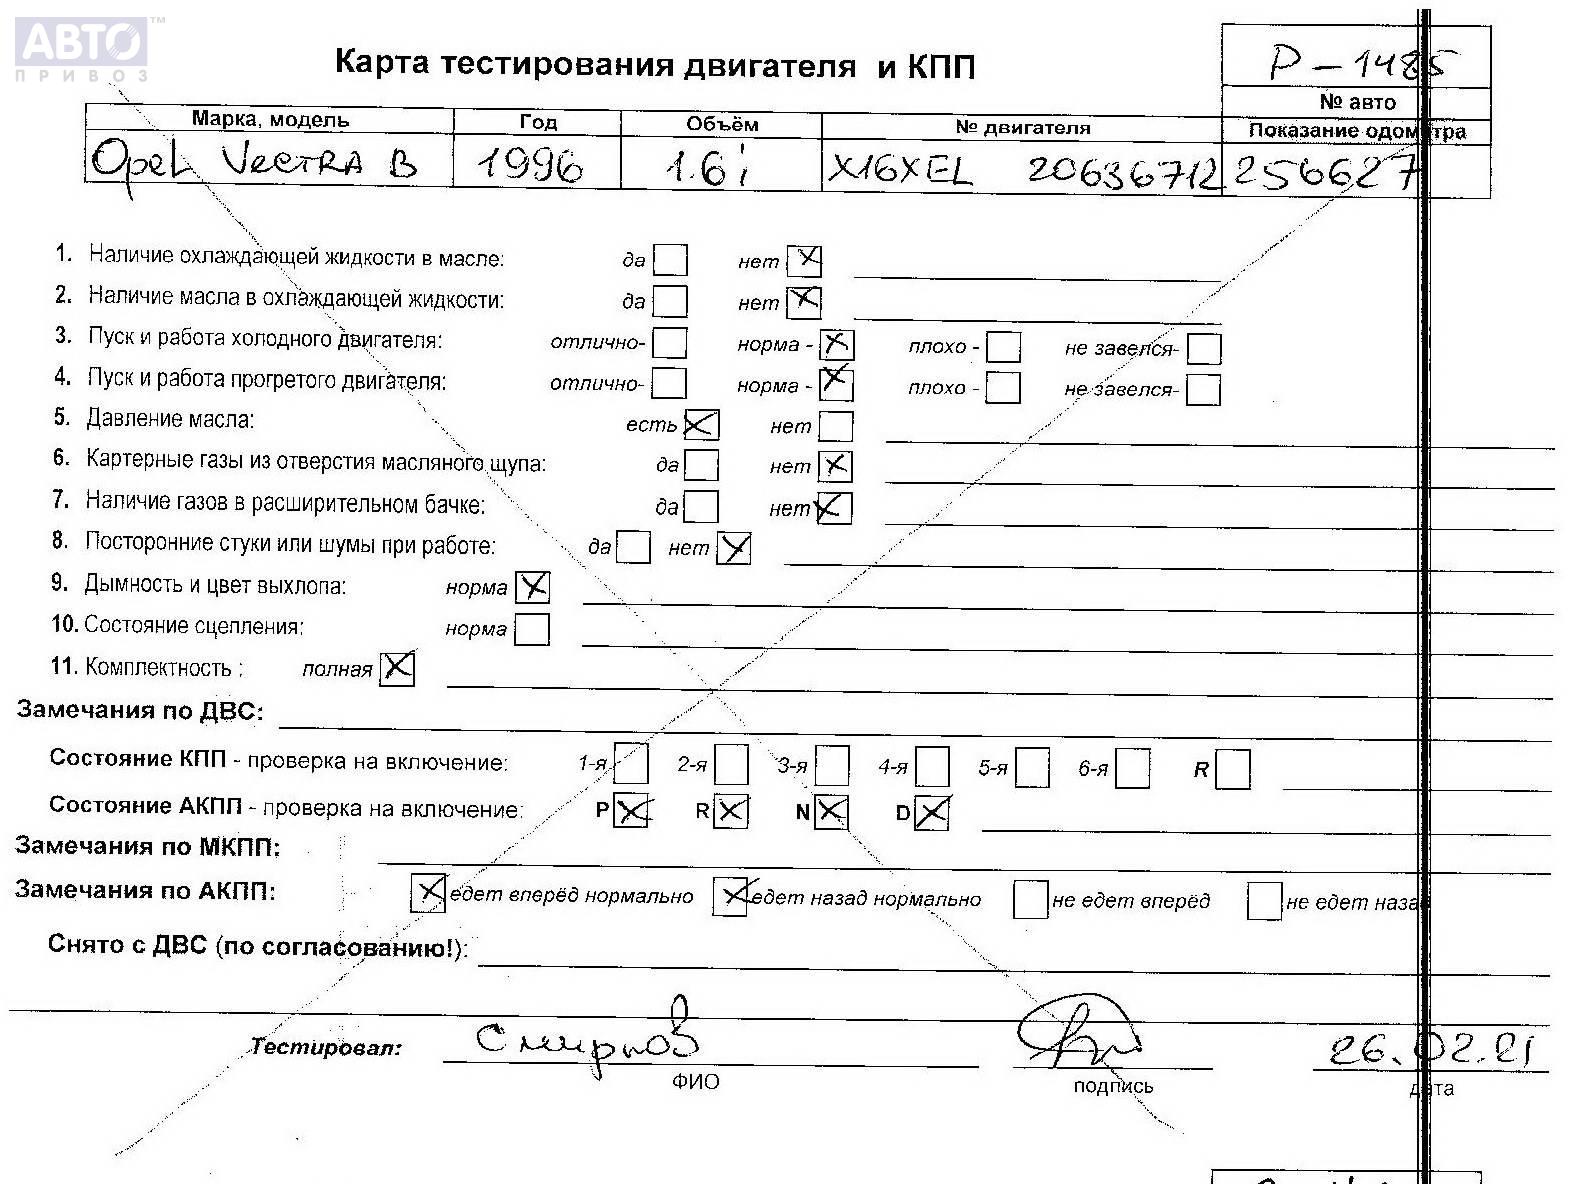 АВТО™
ПРИВОЗ
Карта тестирования двигателя и КПП
Р-1485
№ авто
Марка, модель Год Объём № двигателя Показание одометра
Opel Vectra B 1996 1.6i X16XEL 20636712 256627
1. Наличие охлаждающей жидкости в масле: да нет
2. Наличие масла в охлаждающей жидкости: да нет
3. Пуск и работа холодного двигателя: отлично- норма - плохо - не завелся-
4. Пуск и работа прогретого двигателя: отлично- норма - плохо - не завелся-
5. Давление масла: есть нет
6. Картерные газы из отверстия масляного щупа: да нет
7. Наличие газов в расширительном бачке: да нет
8. Посторонние стуки или шумы при работе: да нет
9. Дымность и цвет выхлопа: норма
10. Состояние сцепления: норма
11. Комплектность : полная
Замечания по ДВС:
Состояние КПП - проверка на включение: 1-я 2-я 3-я 4-я 5-я 6-я R
Состояние АКПП - проверка на включение: P R N D
Замечания по МКПП:
Замечания по АКПП: едет вперёд нормально едет назад нормально не едет вперёд не едет назад
Снято с ДВС (по согласованию!):
Тестировал: Смирнов 26.02.21
ФИО подпись дата